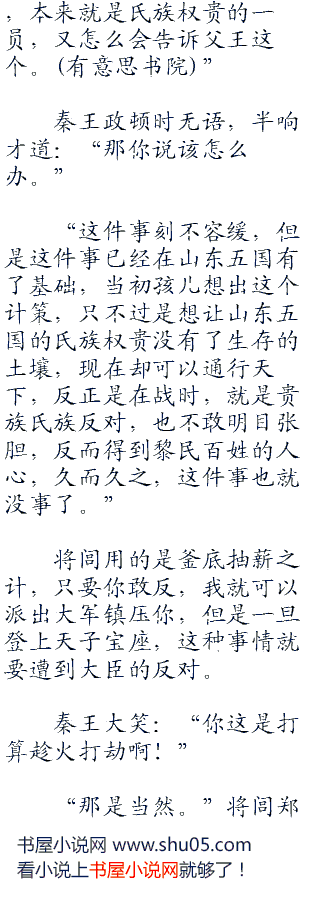 ，本来就是氏族权贵的一
员，又怎么会告诉父王这
个。(有意思书院)”
秦王政顿时无语，半响
才道：“那你说该怎么
办。”
“这件事刻不容缓，但
是这件事已经在山东五国有
了基础，当初孩儿想出这个
计策，只不过是想让山东五
国的氏族权贵没有了生存的
土壤，现在却可以通行天
下，反正是在战时，就是贵
族氏族反对，也不敢明目张
胆，反而得到黎民百姓的人
心，久而久之，这件事也就
没事了。”
将闾用的是釜底抽薪之
计，只要你敢反，我就可以
派出大军镇压你，但是一旦
登上天子宝座，这种事情就
要遭到大臣的反对。
秦王大笑：“你这是打
算趁火打劫啊！”
“那是当然。”将闾郑
书屋小说网 www.shu05.com
看小说上书屋小说网就够了！